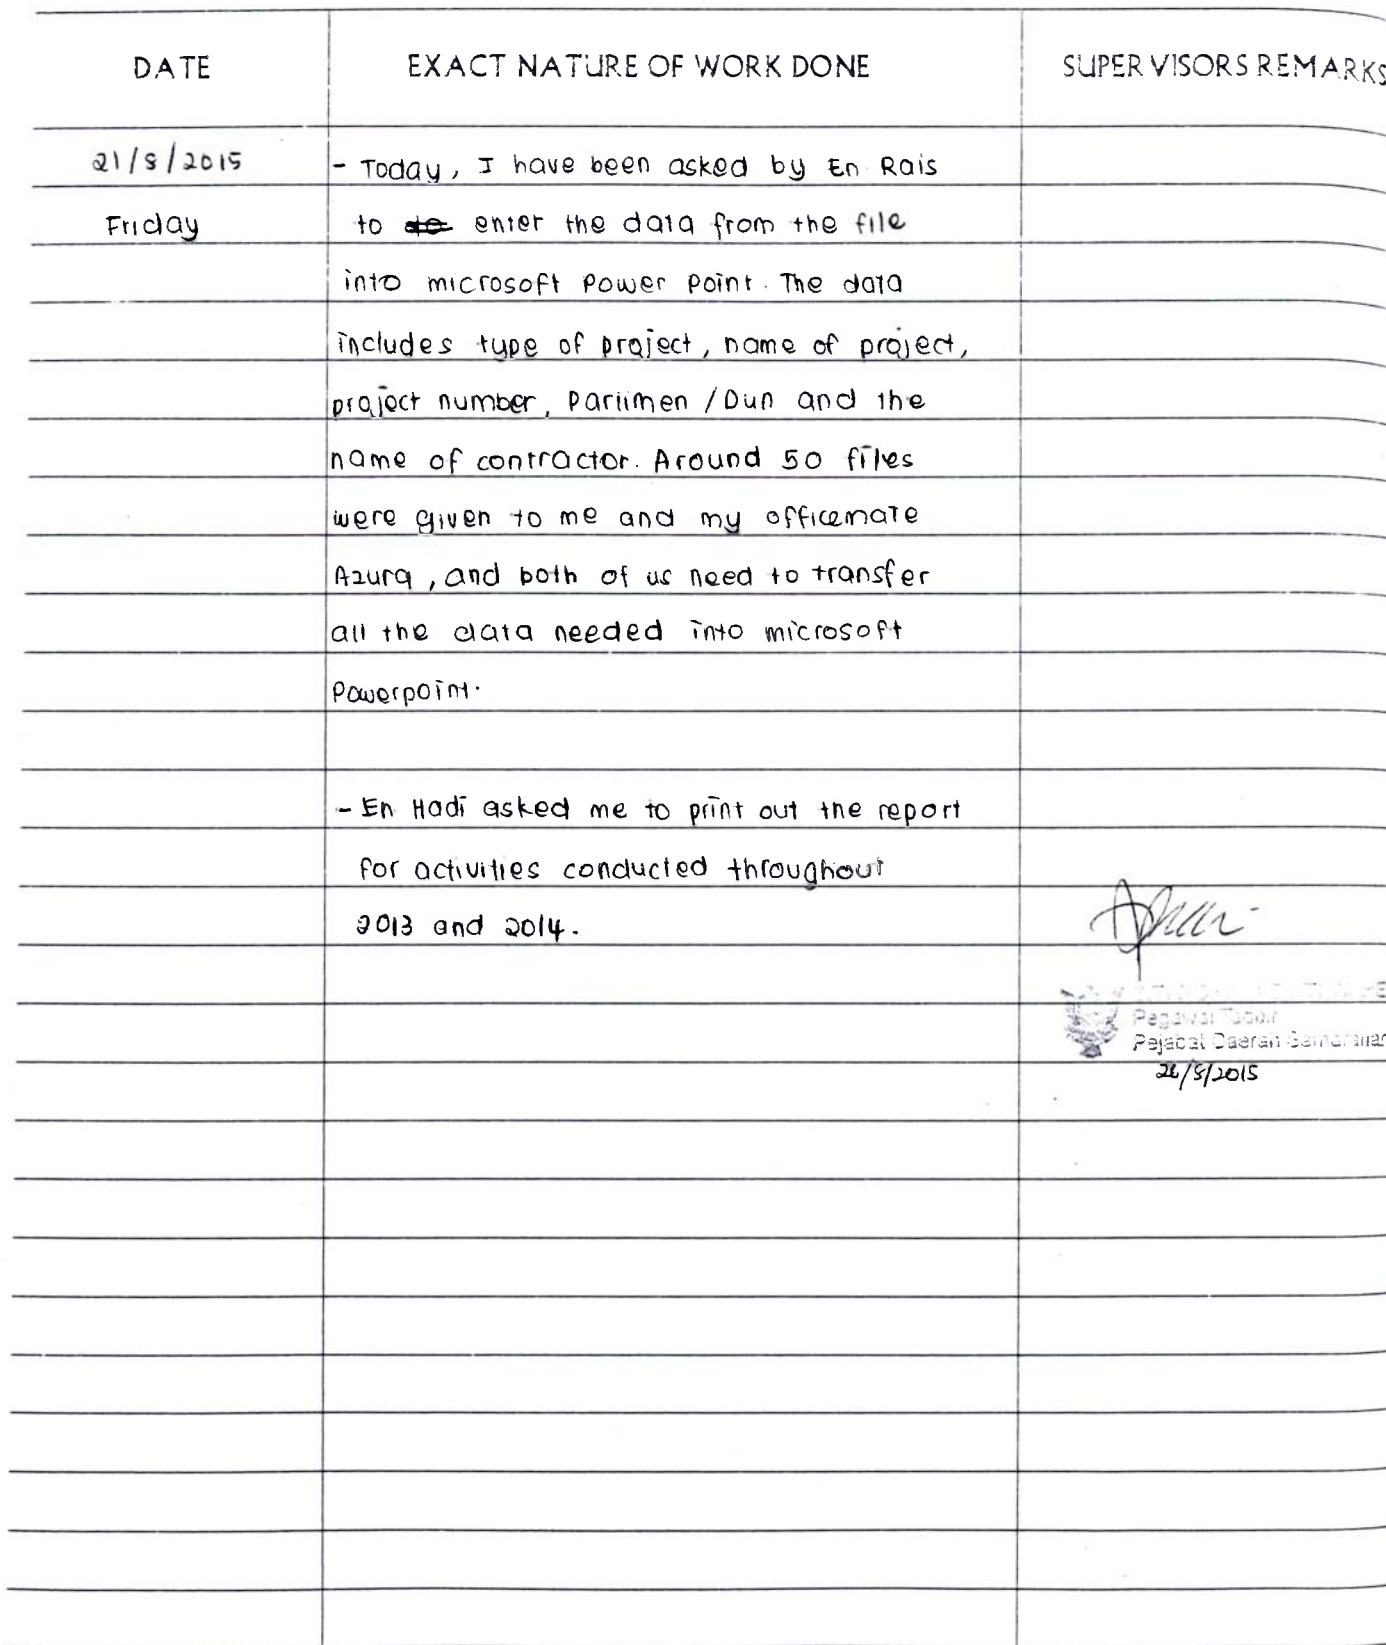 DATE EXACT NATURE OF WORK DONE SUPERVISORS REMARKS
21/8/2015 - Today, I have been asked by En Rais
Friday to enter the data from the file
into microsoft Power Point. The data
includes type of project, name of project,
project number, Parlimen / Dun and the
name of contractor. Around 50 files
were given to me and my officemate
Azura, and both of us need to transfer
all the data needed into microsoft
Powerpoint.
- En Hadi asked me to print out the report
for activities conducted throughout
2013 and 2014.
Pegawai Tadbir
Pejabat Daerah Samarahan
26/8/2015